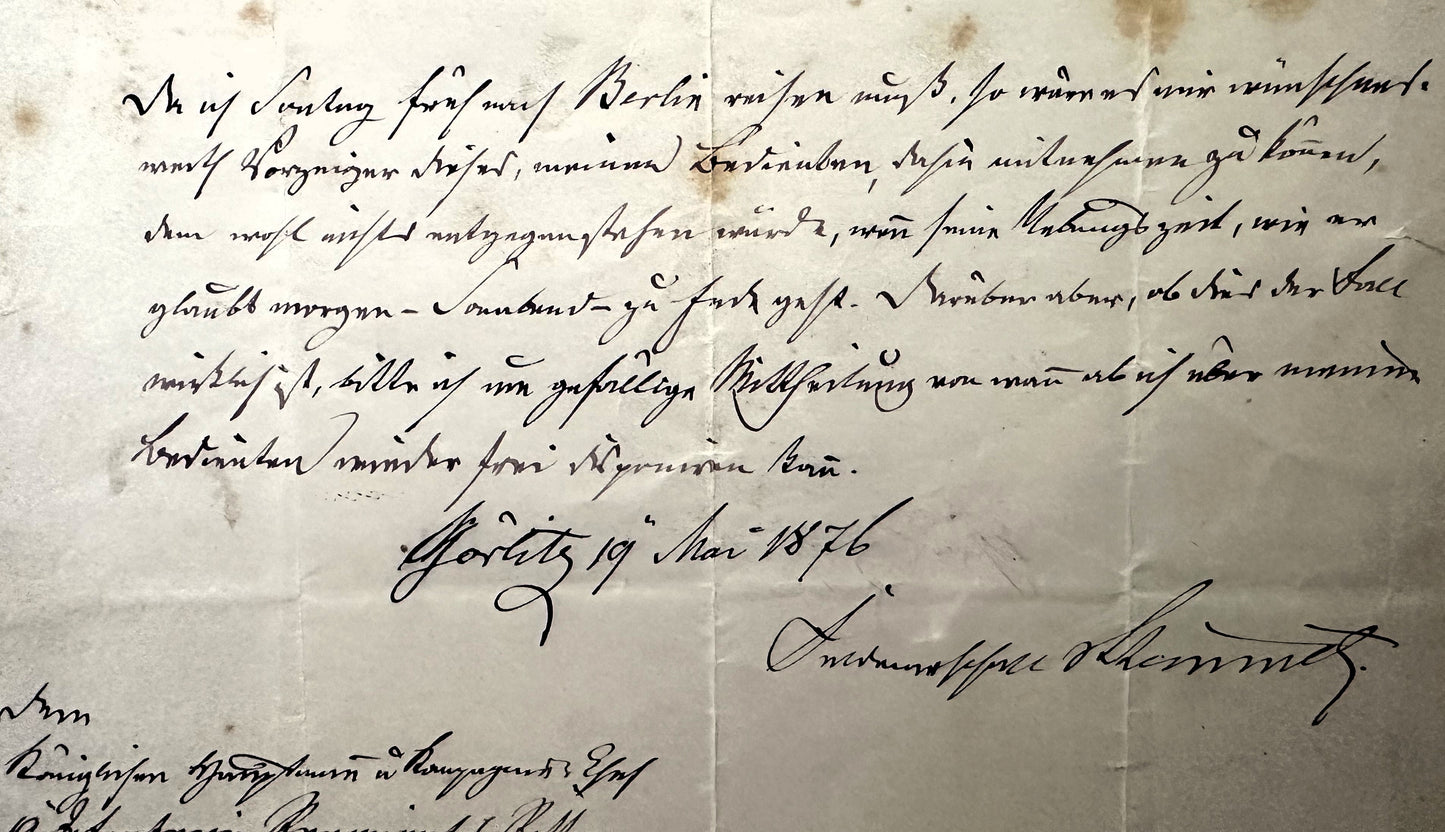 Da ich Sontag früh nach Berlin reisen muß, so wäre es mir wünschens-
werth Vorzeiger dieses, meinen Bedienten, dahin mitnehmen zu können,
dem wohl nichts entgegenstehen würde, wen̄ seine Uebungszeit, wie er
glaubt morgen – Sonnabend – zu Ende geht. Darüber aber, ob dies der Fall
wirklich ist, bitte ich um gefällige Mittheilung von wan̄ ab ich über meinen
Bedienten wieder frei disponiren kan̄.
Görlitz 19 Mai 1876
Feldmarschall Steinmetz.
Dem
Königlichen Hauptman̄ u Kompagnie-Chef